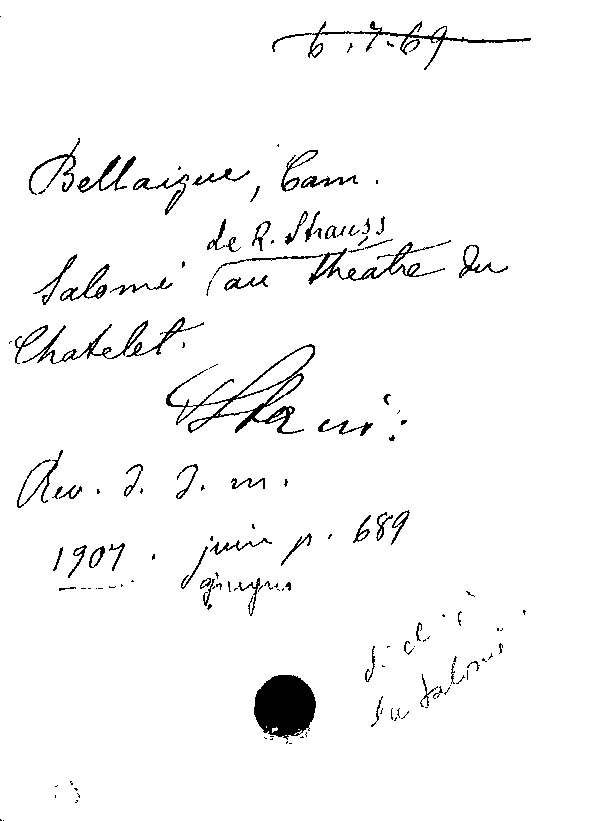 6.7.69
Bellaigue, Cam.
de R. Strauss
Salomé au théatre du
Chatelet.
Rev. d. d. m.
1907. juin p. 689
giugno
su Salomé